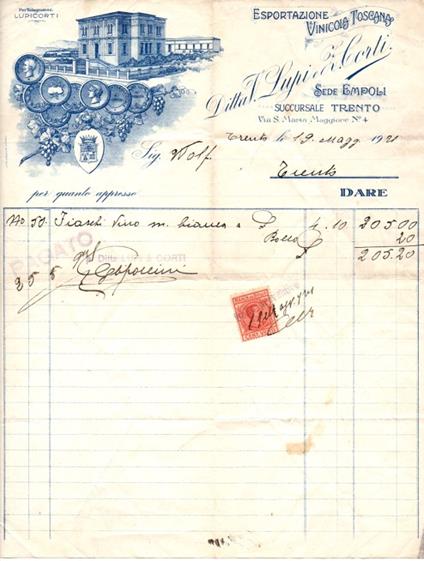 Per Telegrammi:
LUPICORTI
ESPORTAZIONE
VINICOLA TOSCANA
Ditta V. Lupi e Z. Corti.
SEDE EMPOLI
SUCCURSALE TRENTO
Via S. Maria Maggiore Nº 4
Trento li 19 Magg. 1921
Sig. Wolf.
Trento
per quanto appresso
DARE
No 50. Fiaschi Vino m. bianco a £ 4.10 205.00
Bollo 20
£ 205.20
PAGATO
Ditta LUPI & CORTI
25 5